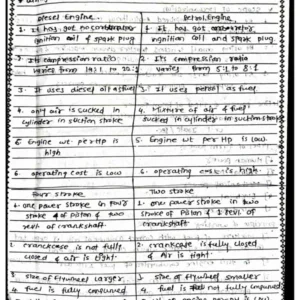 Diesel Engine. Petrol Engine.
1. It has got no carburator 1. It has got carburator
ignition coil & spark plug ignition coil and spark plug.
2. Its compression ratio 2. Its compression ratio
varies from 14:1 to 22:1 varies from 5:1 to 8:1
3. It uses diesel oil as fuel 3. It uses petrol as fuel.
4. only air is sucked in 4. Mixture of air & fuel
cylinder in suction stroke sucked in cylinder in suction
5. Engine wt per Hp is 5. Engine wt per Hp is low.
high
6. operating cost is low 6. operating cost is high.
Four stroke Two stroke
1. one power stroke in four 1. one power stroke in two
stroke of Piston & two stroke of Piston & 1 revl of
revl of crankshaft crankshaft
2. cranckcase is not fully 2. crankcase is fully closed
closed & air is tight. & Air is tight.
3. size of flywheel larger. 3. size of flywheel smaller
4. fuel is fully consumed 4. fuel is not fully consumed